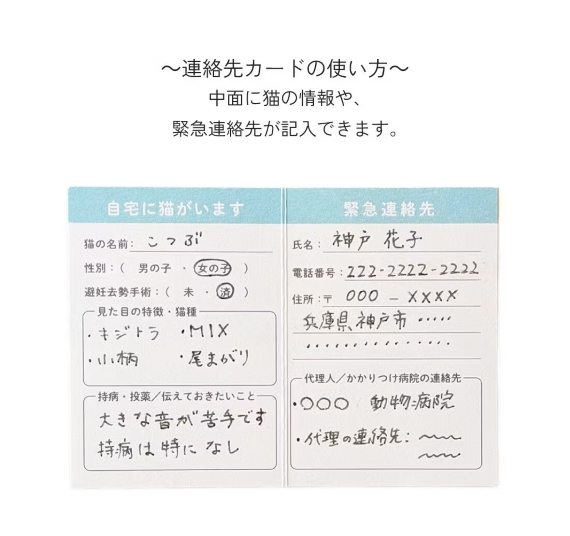 〜連絡先カードの使い方〜
中面に猫の情報や、
緊急連絡先が記入できます。
自宅に猫がいます
猫の名前： こつぶ
性別：（ 男の子 ・ 女の子 ）
避妊去勢手術：（ 未 ・ 済 ）
見た目の特徴・猫種
・キジトラ ・MIX
・小柄 ・尾まがり
持病・投薬／伝えておきたいこと
大きな音が苦手です
持病は特になし
緊急連絡先
氏名： 神戸 花子
電話番号： 222-2222-2222
住所：〒 000 − XXXX
兵庫県神戸市 ・・・・・
・・・・・・・・・・・・・
代理人／かかりつけ病院の連絡先
・○○○ 動物病院
・代理の連絡先： 〜〜
〜〜